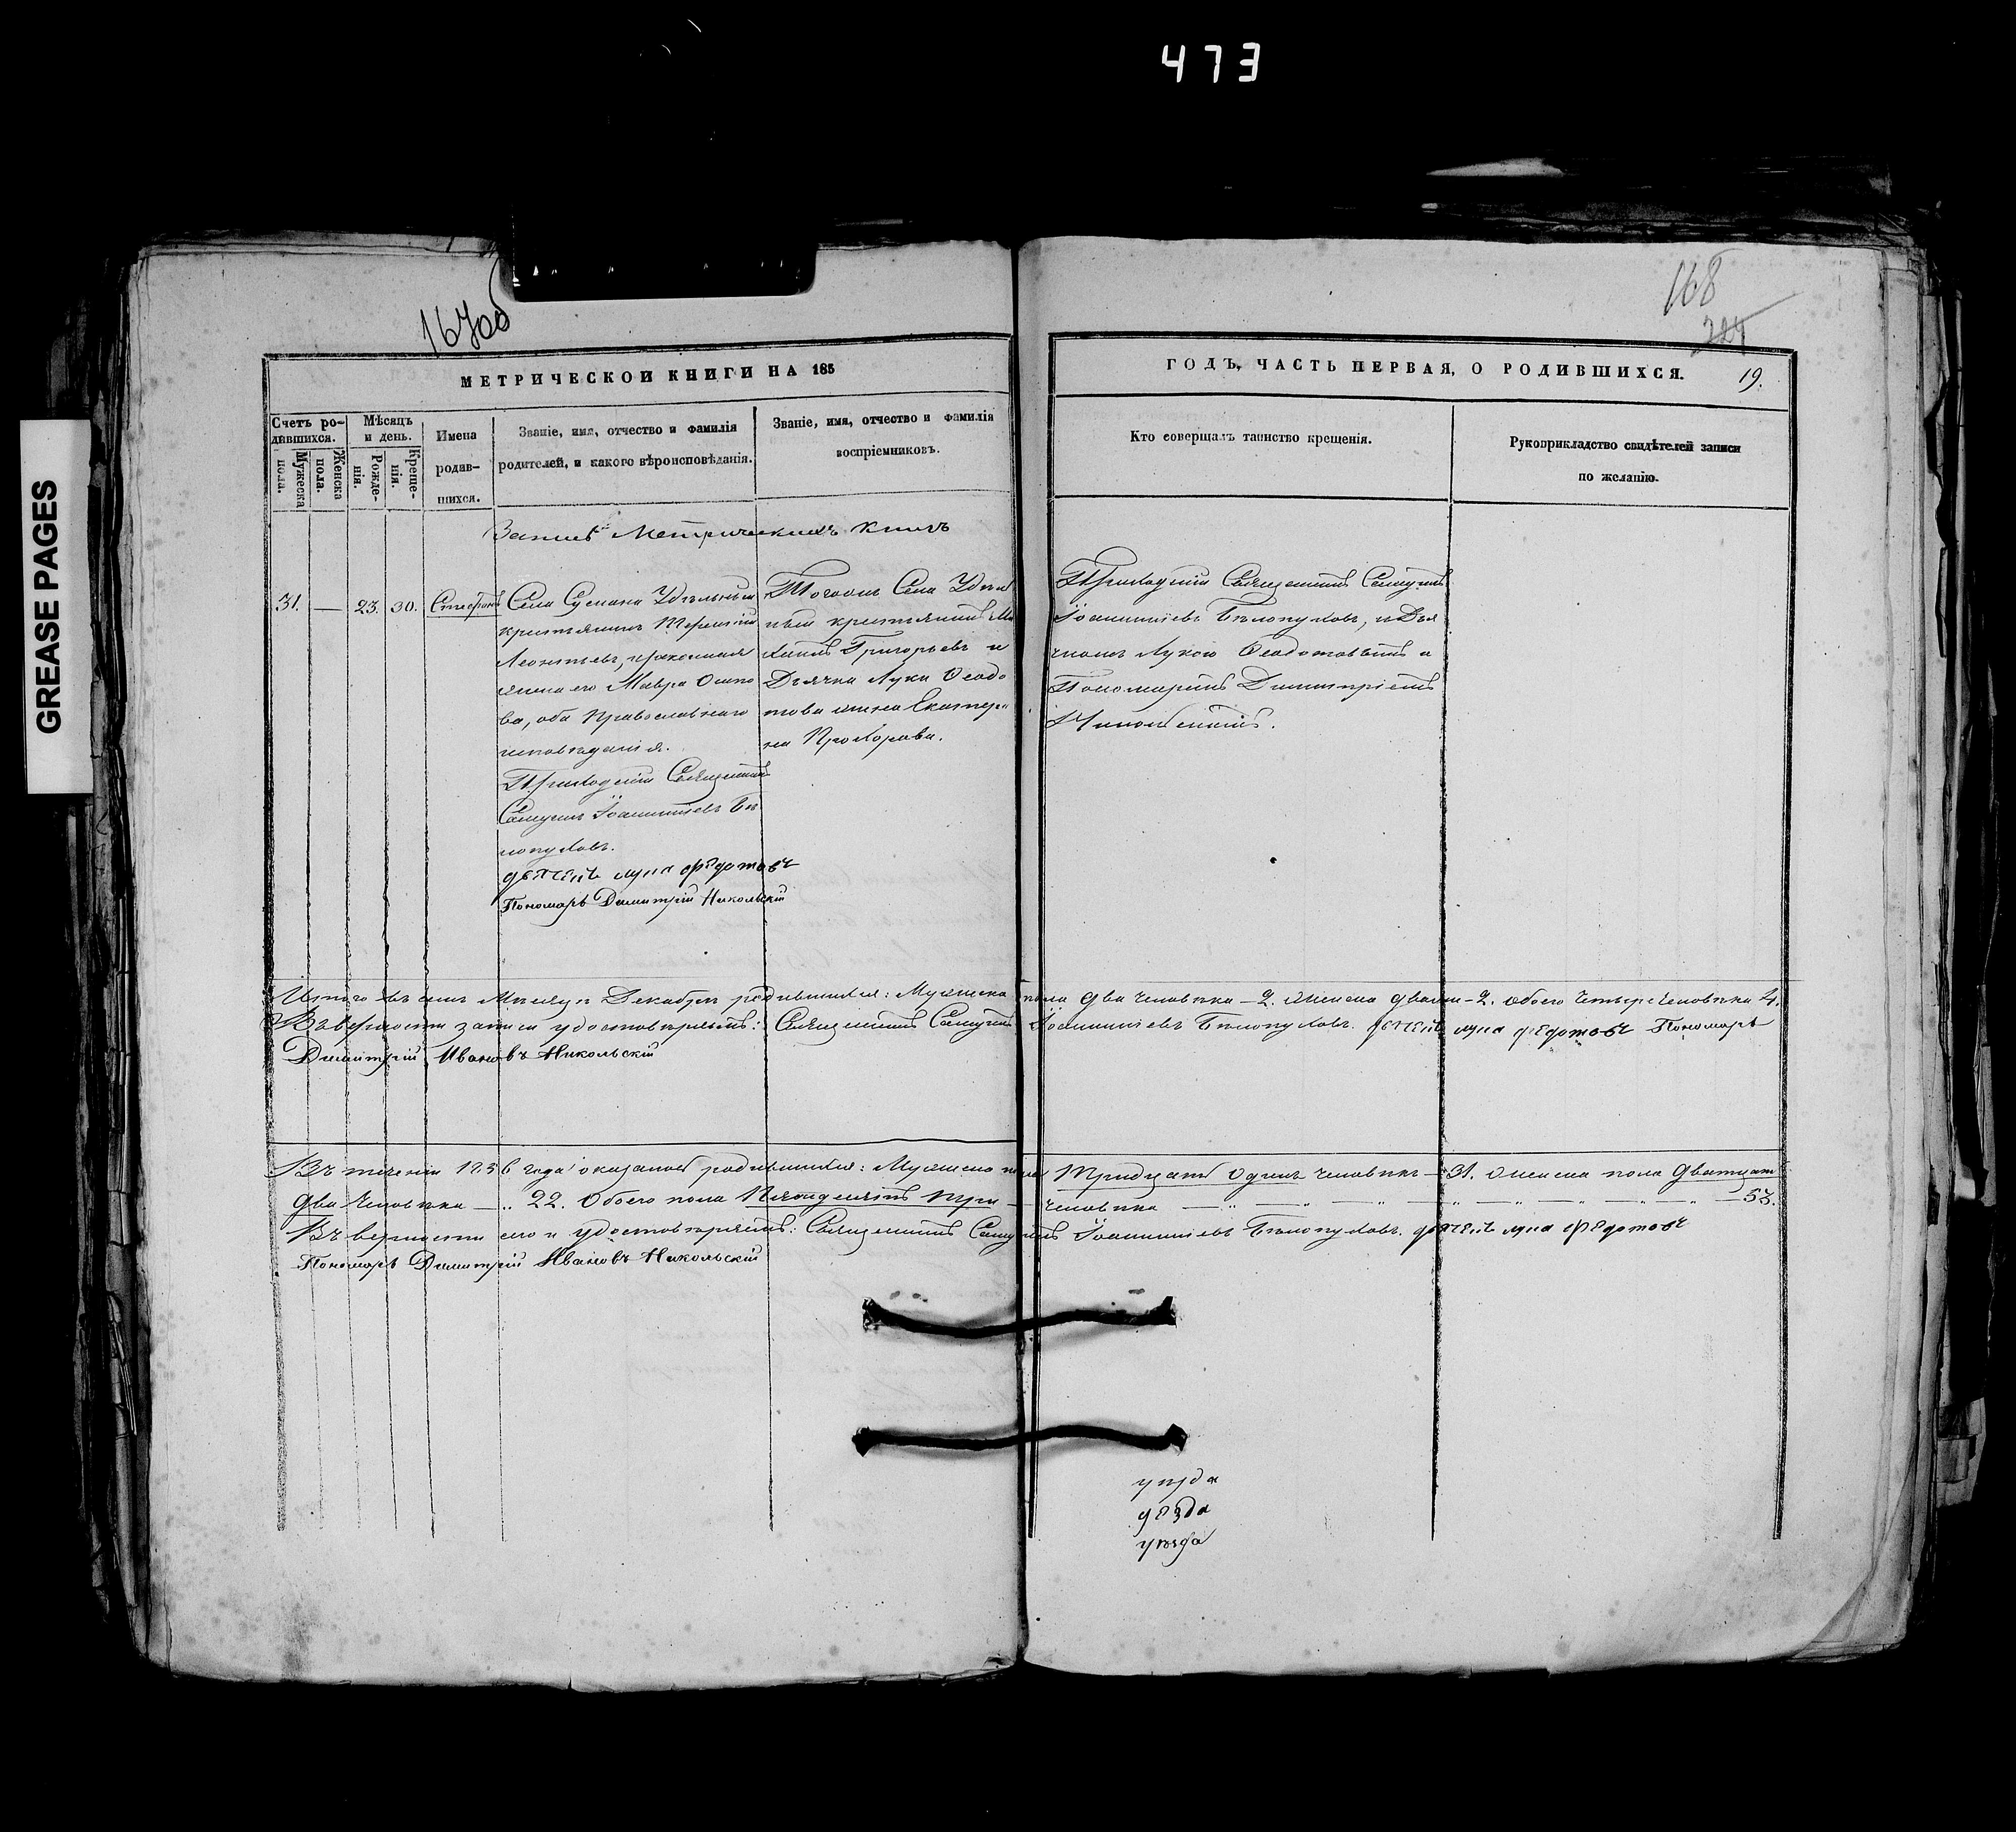 473
GREASE PAGES
167об
168
МЕТРИЧЕСКОЙ КНИГИ НА 185
ГОДЪ, ЧАСТЬ ПЕРВАЯ, О РОДИВШИХСЯ.
19.
Счетъ родившихся.
Мужеска пола.
Женска пола.
Мѣсяцъ и день.
Рожденія.
Крещенія.
Имена
родив-
шихся.
Званіе, имя, отчество и фамилія
родителей, и какого вѣроисповѣданія.
Званіе, имя, отчество и фамилія
воспріемниковъ.
Кто совершалъ таинство крещенія.
Рукоприкладство свидѣтелей записи
по желанію.
Метрическихъ книгъ
31. — 23. 30. Стефанъ
Села Сускана Удѣльный
крестьянинъ Терентій
Леонтьевъ, и законная
жена его Мавра Осипо
ва, оба Православнаго
исповѣданія.
Приходскій Священникъ
Самуилъ Іоанніевъ Бѣ
лопуховъ.
дячекъ лука федотовъ
Пономарь Димитрій Никольскій
Тогожъ Села Удѣль
ный крестьянинъ Ми
хаилъ Григорьевъ и
Дьячка Луки Ѳеодо
това жена Екатери
на Прохорова.
Приходскій Священникъ Самуилъ
Іоанніевъ Бѣлопуховъ, и Дья
чкомъ Лукою Ѳеодотовымъ и
Пономаремъ Димитріемъ
Никольскимъ.
Итого въ семъ Мѣсяцѣ Декабрѣ родившихся: Мужеска пола два человѣка — 2. женска двѣ — 2. обоего четыре человѣка 4.
Въ вѣрности записи удостовѣряемъ: Священникъ Самуилъ Іоанніевъ Бѣлопуховъ. дячекъ лука федотовъ Пономарь
Димитрій Ивановъ Никольскій
Въ теченіи 1856 года оказалось родившихся: Мужеска пола Тридцать Одинъ человѣкъ — 31. Женска пола Дватцать
два человѣка — „ 22. Обоего пола Пятьдесятъ три — человѣка — „ — „ — 53.
Въ вѣрности сего и удостовѣряемъ: Священникъ Самуилъ Іоанніевъ Бѣлопуховъ. дячекъ лука федотовъ
Пономарь Димитрій Ивановъ Никольскій
уѣзда
уезда
уѣзда